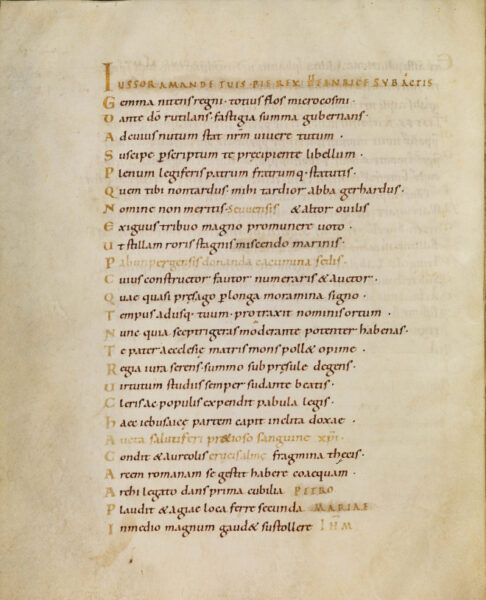 IUSSOR AMANDE TUIS PIE REX HEINRICE SUBACTIS
Gemma nitens regni · totius flos microcosmi ·
Dante dō rutilans · fastigia summa gubernans
Ad cuius nutum stat nrm uiuere tutum ·
Suscipe pscriptum te precipiente libellum ·
Plenum legiferis patrum fratrumq · statutis ·
Quem tibi non tardus · mihi tardior abba gerhardus ·
Nomine non meritis · Seuuensis & altor ouilis
Exiguus tribuo magno pro munere uoto ·
Ut stillam roris stagnis miscendo marinis ·
Pabinpergensis donanda cacumina sedis ·
Cuius constructor fautor numeraris & auctor ·
Quae quasi presago plonga moramina signo ·
Tempus adusq · tuum · protraxit nominis ortum ·
Nunc quia sceptrigeras moderante potenter habenas ·
Te pater aecclesię matris mons poll& opime ·
Regia iura serens · summo sub presule degens ·
Uirtutum studiis semper sudante beatis ·
Cleris ac populis expendit pabula legis ·
Haec iebusaicę partem capit inclita doxae ·
Aucta salutiferi praetioso sanguine xpi ·
Condit & aureolis crucis almę fragmina thecis ·
Arcem romanam se gestit habere coaequam ·
Archi legato dans prima cubilia PETRO
Plaudit & agiae loca ferre secunda MARIAE
In medio magnum gaud& sustollere IHM